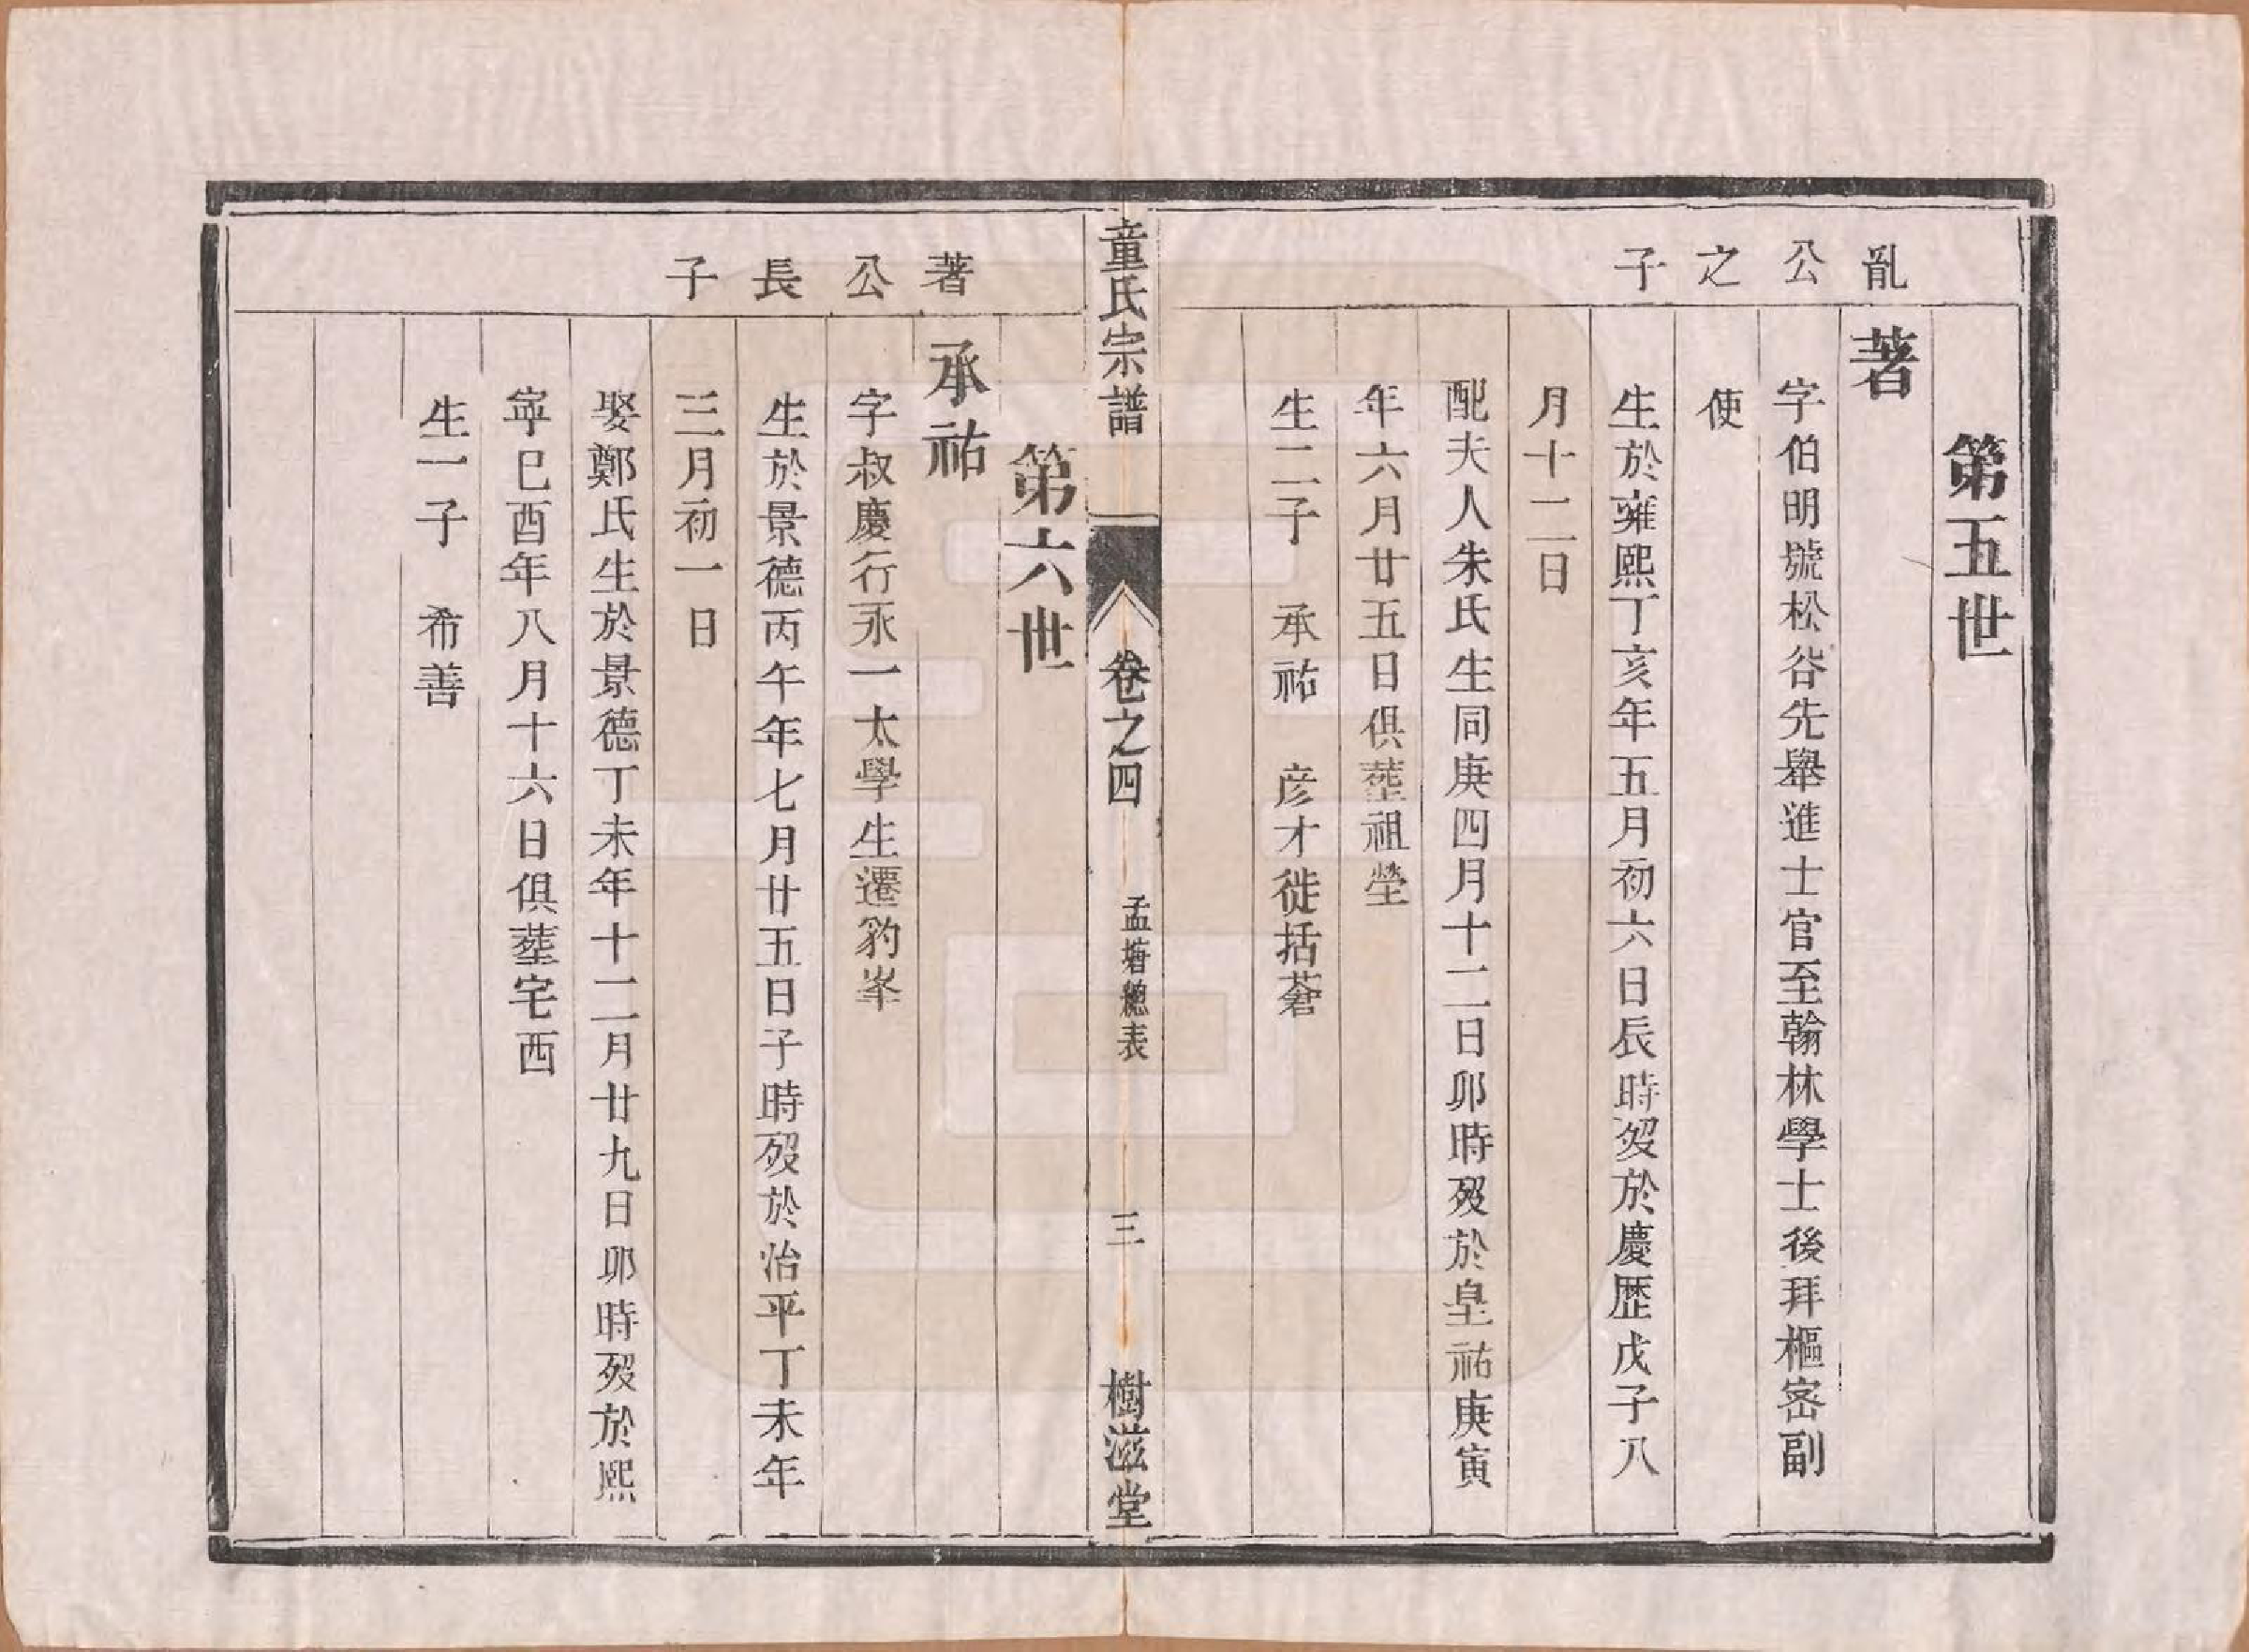 第五世
亂公之子
著
字伯明號松谷先舉進士官至翰林學士後拜樞密副
使
生於雍熙丁亥年五月初六日辰時歿於慶歷戊子八
月十二日
配夫人朱氏生同庚四月十二日卯時歿於皇祐庚寅
年六月廿五日俱塟祖塋
生二子　承祐　彦才徙括蒼
童氏宗譜　卷之四　孟塘總表　三　樹滋堂
第六世
著公長子
承祐
字叔慶行永一太學生遷豹峯
生於景德丙午年七月廿五日子時歿於治平丁未年
三月初一日
娶鄭氏生於景德丁未年十二月廿九日卯時歿於熙
寧巳酉年八月十六日俱塟宅西
生一子　希善